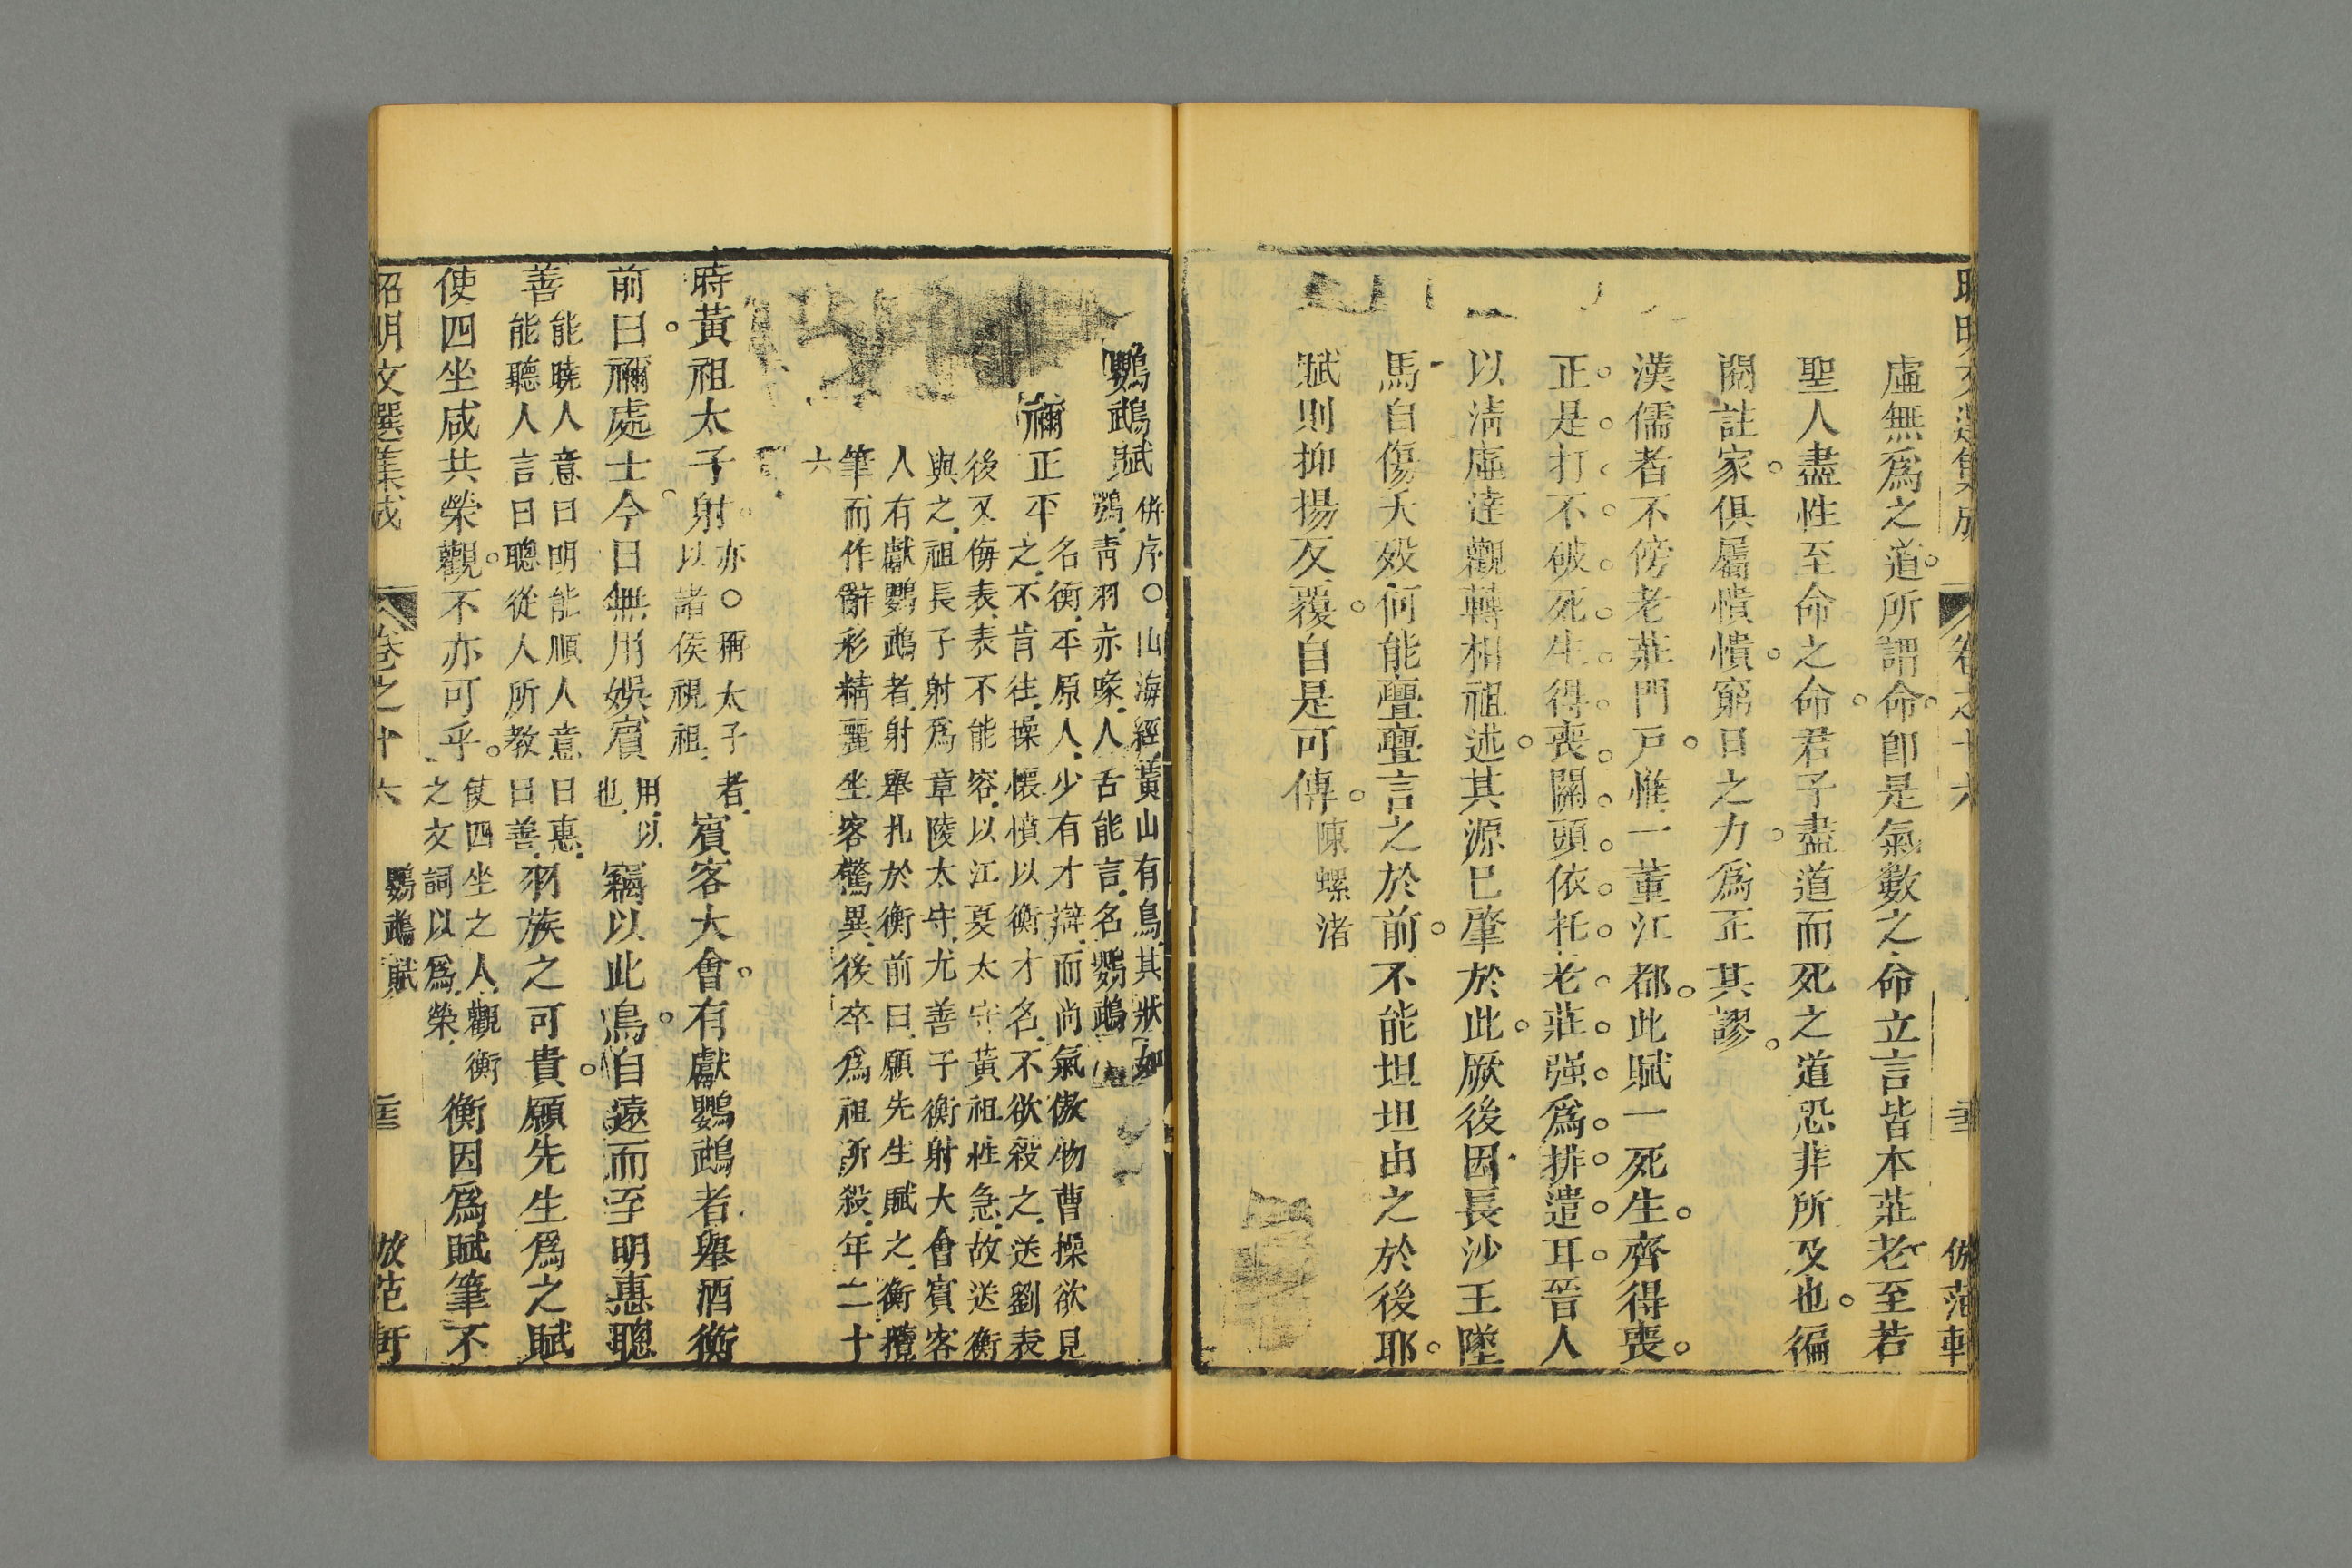 虛無爲之道所謂命卽是氣數之命立言皆本莊老至若
聖人盡性至命之命君子盡道而死之道恐非所及也徧
閱註家俱屬憒憒窮日之力爲正其謬
漢儒者不傍老莊門戸惟一董江都此賦一死生齊得喪
正是打不破死生得喪關頭依托老莊强爲排遣耳晉人
以淸虛達觀轉相祖述其源已肇於此厥後因長沙王墜
馬自傷夭殁何能亹亹言之於前不能坦坦由之於後耶
賦則抑揚反覆自是可傳陳螺渚
鸚鵡賦
倂序○山海經黃山有鳥其狀如
鴞靑羽亦喙人舌能言名鸚鵡
禰正平
名衡平原人少有才辯而尚氣傲物曹操欲見
之不肯往操懷憤以衡才名不欲殺之送劉表
後又侮表表不能容以江夏太守黃祖性急故送衡
與之祖長子射爲章陵太守尤善子衡射大會賓客
人有獻鸚鵡者射舉扎於衡前曰願先生賦之衡攬
筆而作辭彩精麗坐客驚異後卒爲祖所殺年二十
六
時黃祖太子射
亦○稱太子者
以諸侯視祖
賓客大會有獻鸚鵡者舉酒衡
前曰禰處士今日無用娛賓
用以
也
竊以此鳥自遠而至明惠聰
善
能曉人意曰明能順人意曰惠
能聽人言曰聰從人所教曰善
羽族之可貴願先生爲之賦
使四坐咸共榮觀不亦可乎
使四坐之人觀衡
之文詞以爲榮
衡因爲賦筆不
昭明文選集成
卷之十六
鸚鵡賦